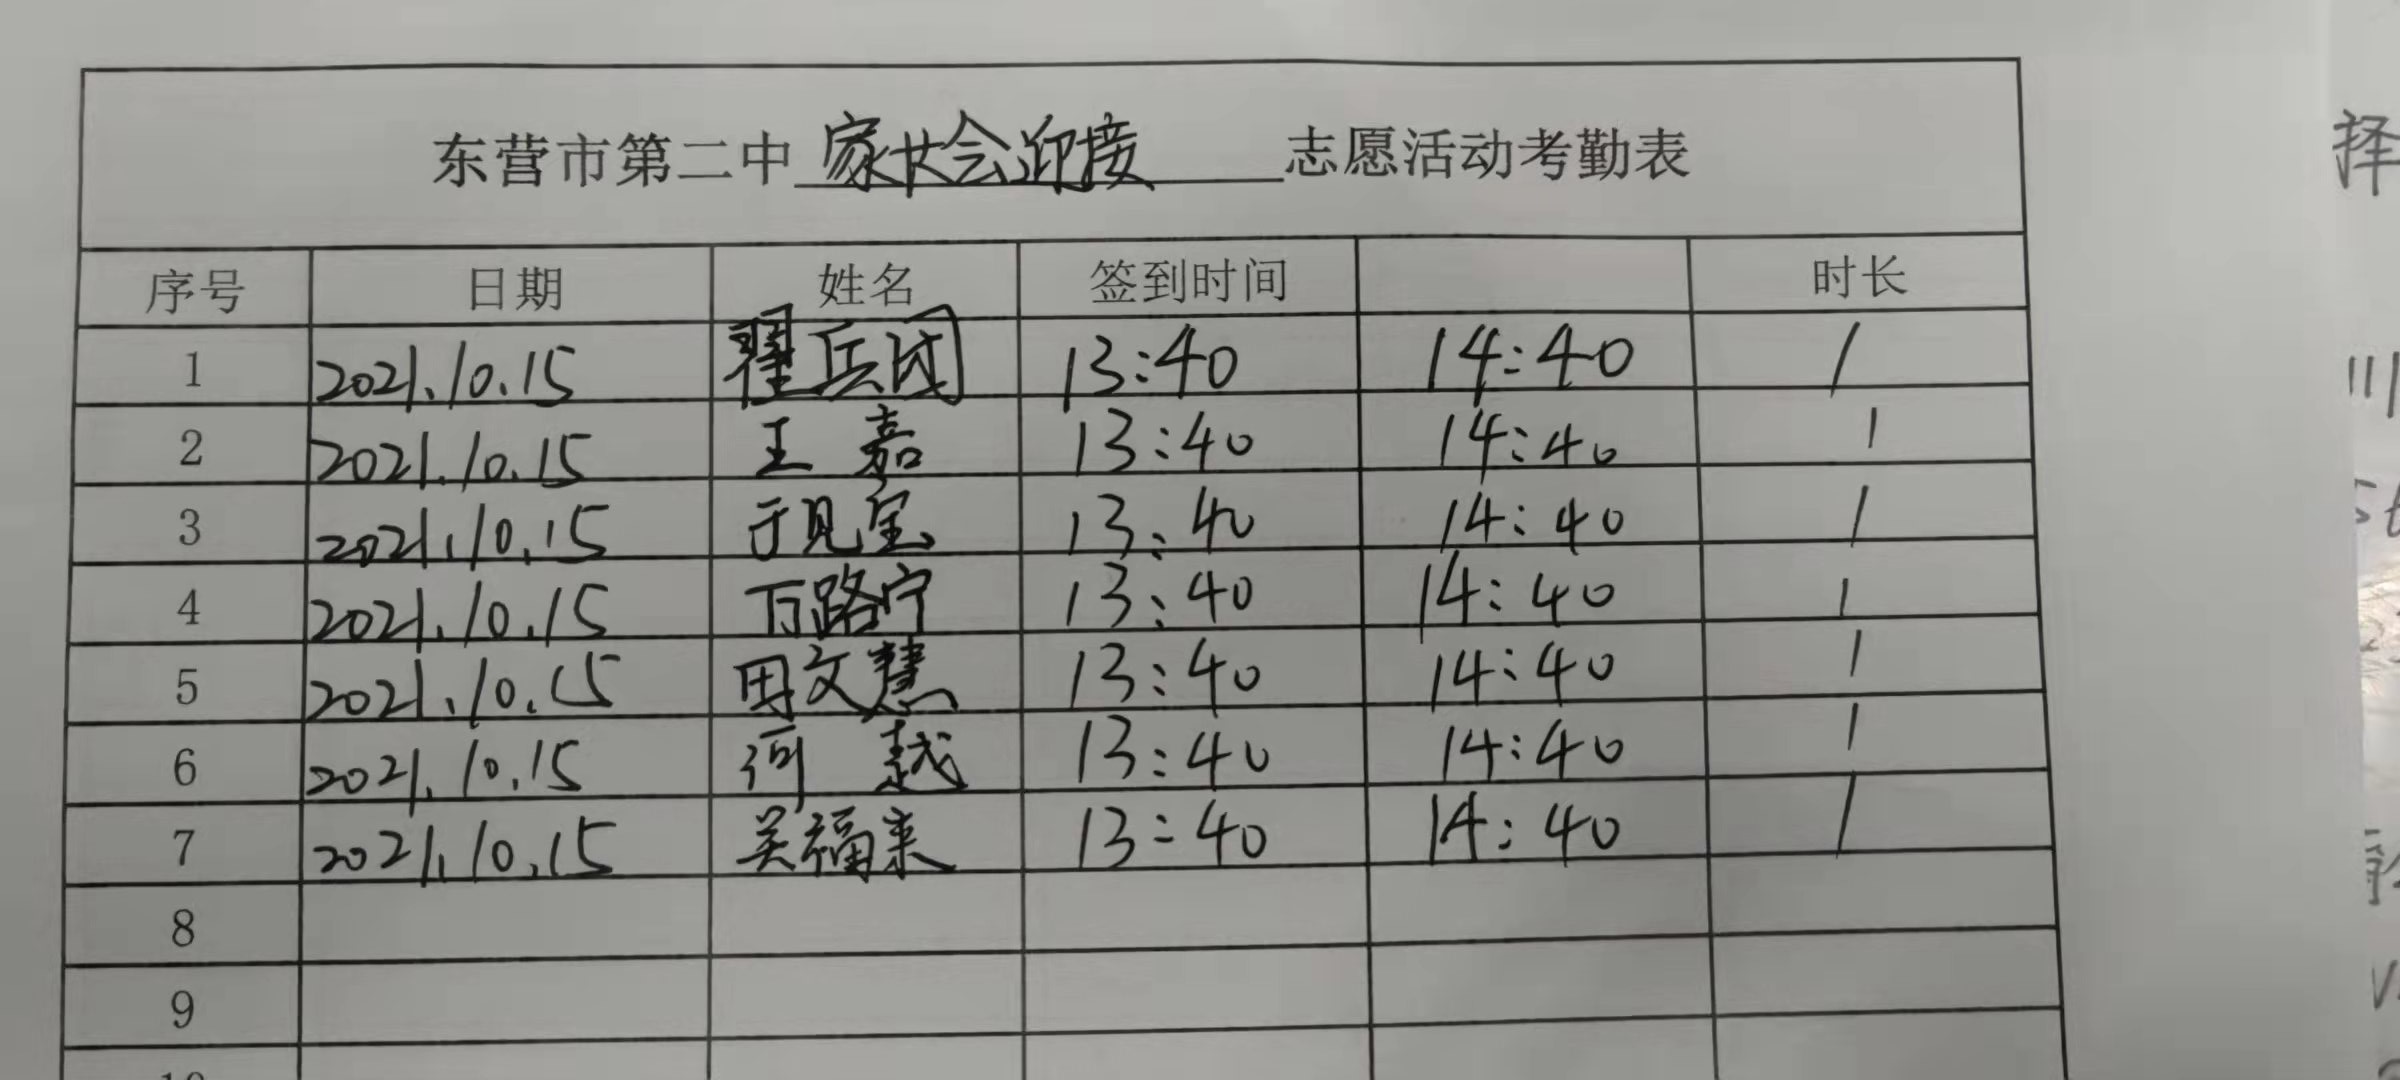 东营市第二中家长会迎接志愿活动考勤表
序号 日期 姓名 签到时间 时长
1 2021.10.15 翟兵团 13:40 14:40 1
2 2021.10.15 王嘉 13:40 14:40 1
3 2021.10.15 于见宝 13:40 14:40 1
4 2021.10.15 万路宁 13:40 14:40 1
5 2021.10.15 田文慧 13:40 14:40 1
6 2021.10.15 河越 13:40 14:40 1
7 2021.10.15 吴福来 13:40 14:40 1
8
9
择